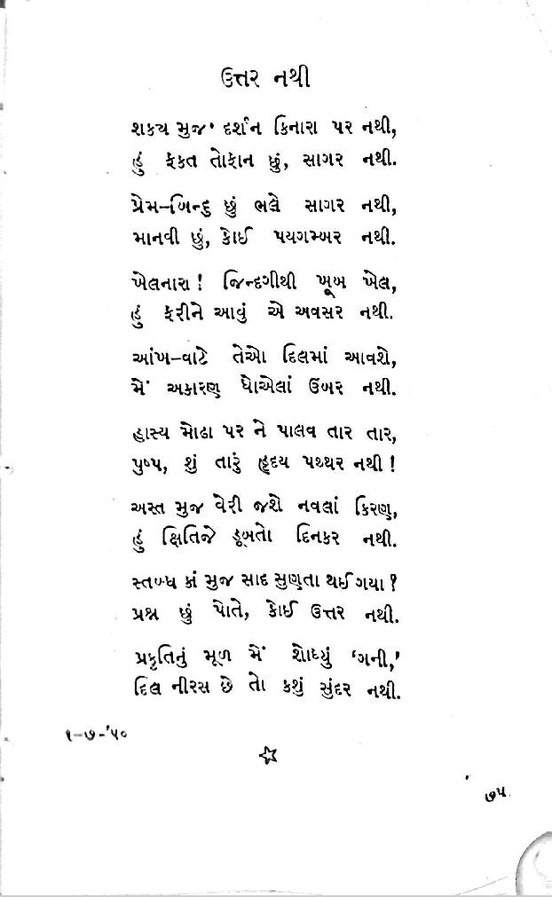 ઉત્તર નથી
શક્ય મુજ દર્શન કિનારા પર નથી,
હું ફકત તોફાન છું, સાગર નથી.
પ્રેમ-બિન્દુ છું ભલે સાગર નથી,
માનવી છું, કોઈ પયગમ્બર નથી.
ખેલનારા ! જિન્દગીથી ખૂબ ખેલ,
હું ફરીને આવું એ અવસર નથી.
આંખ-વાટે તેઓ દિલમાં આવશે,
મેં અકારણ ધોએલાં ઉંબર નથી.
હાસ્ય મોઢા પર ને પાલવ તાર તાર,
પુષ્પ, શું તારું હૃદય પથ્થર નથી !
અસ્ત મુજ વેરી જશે નવલાં કિરણ,
હું ક્ષિતિજે ડૂબતો દિનકર નથી.
સ્તબ્ધ કાં મુજ સાદ સુણતા થઈ ગયા ?
પ્રશ્ન છું પોતે, કોઈ ઉત્તર નથી.
પ્રકૃતિનું મૂળ મેં શોધ્યું ‘ગની,’
દિલ નીરસ છે તો કશું સુંદર નથી.
૧-૭-’૫૦
૭૫